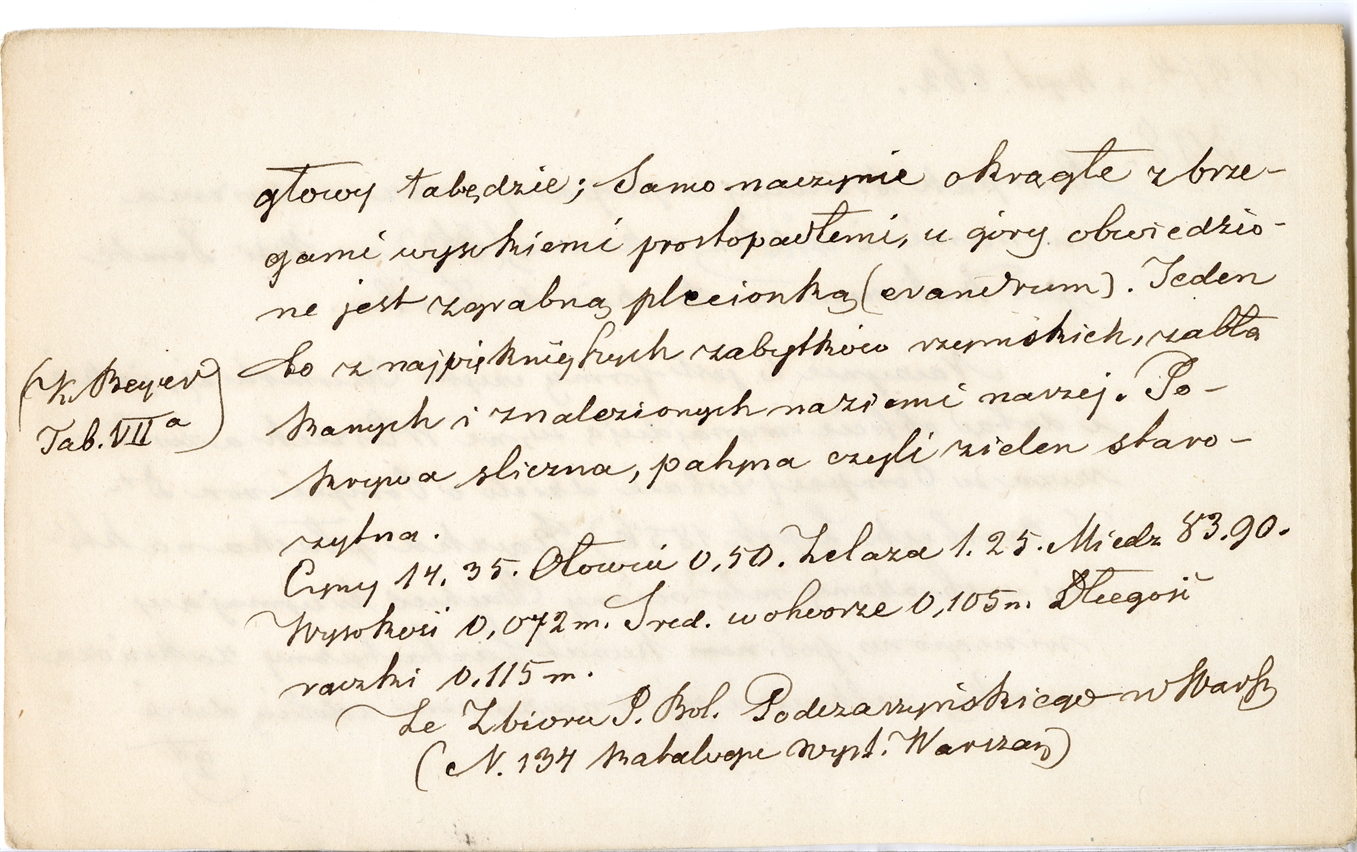 głowy łabędzie; Samo naczynie okrągłe z brze-
gami wysokiemi prostopadłemi, u góry obwiedzio-
ne jest zgrabną plecionką (evandrum). Jeden
to z najpiękniejszych zabytków rzymskich, zabłą
kanych i znalezionych na ziemi naszej. Po-
krywa śliczna, patyna czyli zieleń staro-
żytna.
(K. Beyer
Tab. VII a)
Cyny 14.35. Ołowiu 0,50. Żelaza 1.25. Miedz 83.90.
Wysokość 0,072 m. Śred. w otworze 0,105 m. Długość
rączki 0.115 m.
Ze Zbioru P. Bol. Podczaszyńskiego w Warsz
(N. 134 Katalogu Wyst. Warszaw)